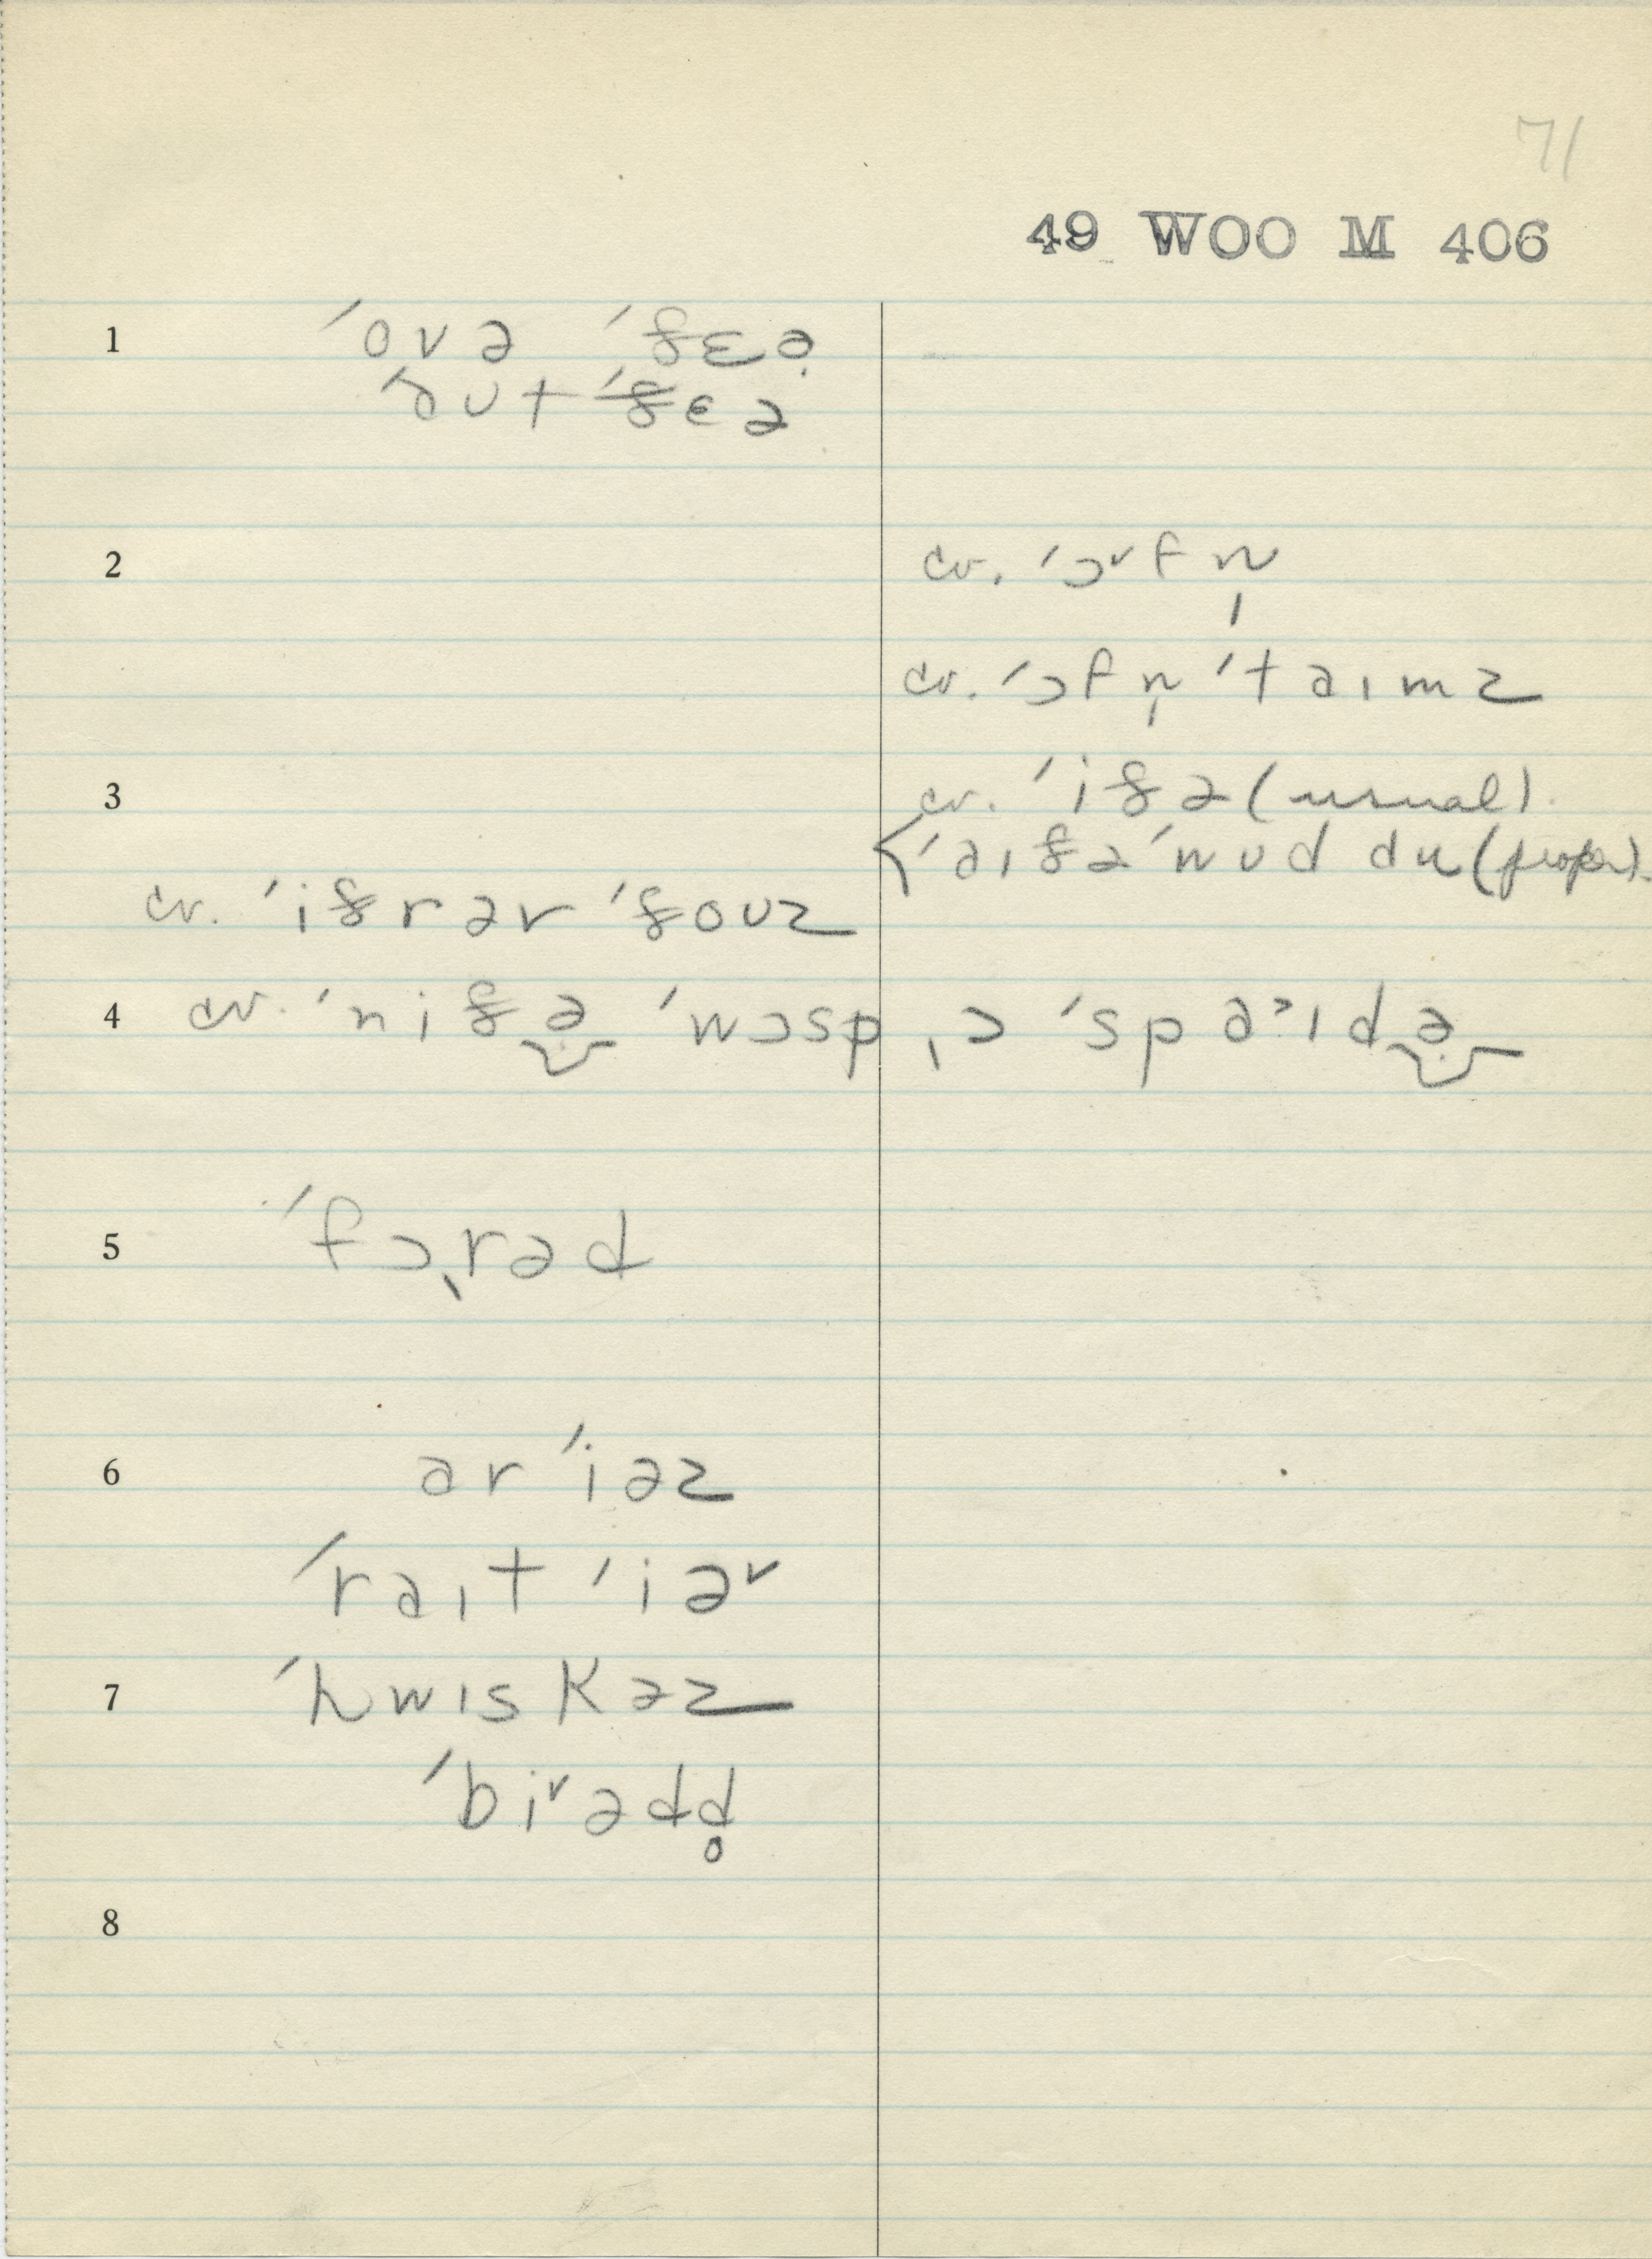 71
49 WOO M 406
1 ˈova ˈðɛə̣
ˈaʊt ˈðɛə
2 cv. ˈɔᵛfn̩
cv. ˈɔfn̩ ˈtaɪmz
3 cv. ˈiðə (usual).
ˈaɪðə ˈwʊd du (proper).
cv. ˈiðrər ˈðoʊz
4 cv. ˈniðə ˈwɔsp, ɔ ˈspaˀɪdə
5 ˈfɔ˛rəd
6 ərˈiəz
ˈraɪt ˈiəʳ
7 ˈhwɪskəz
ˈbiʳədd̥
8